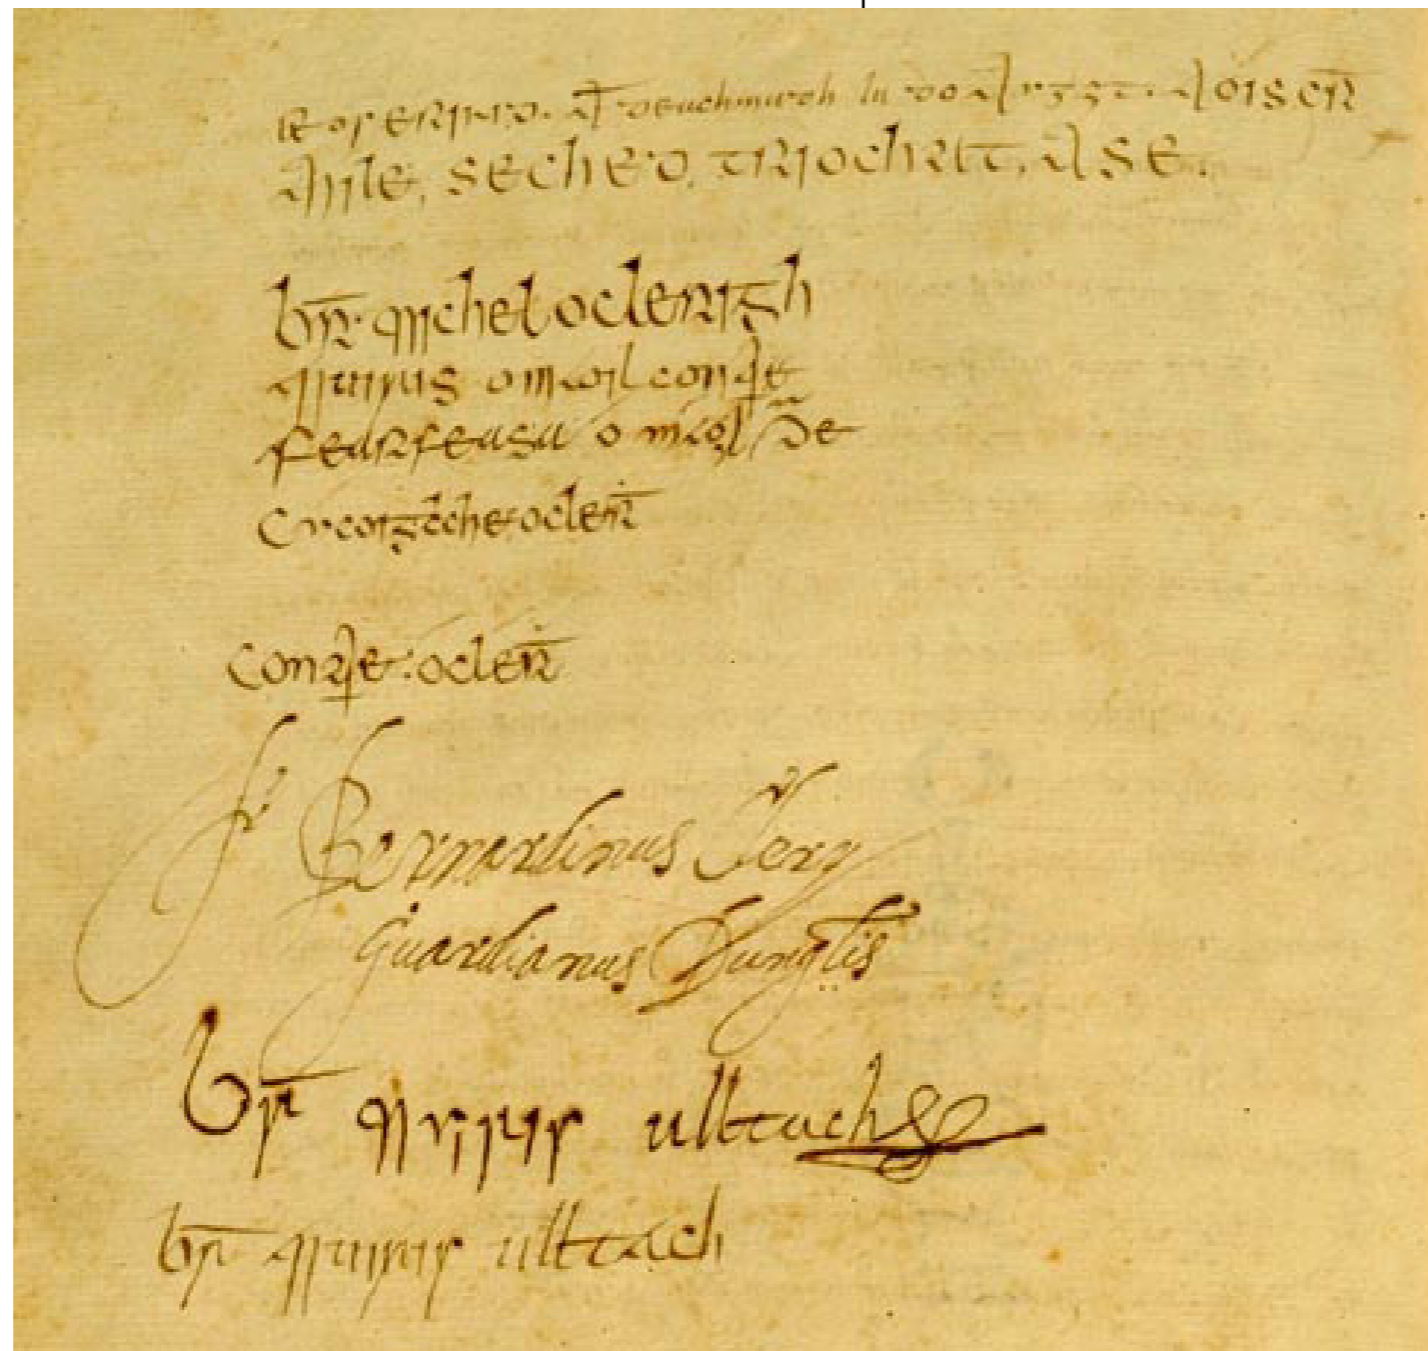 deachmadh la do august. aois cr̄
mile, se ched. triochatt, a se.
br̄. michel o clerigh
muirus o maoilconaire
fearfeasa o maol
Cucoigcche o cler̄
conaire o cler̄
fr Bernardinus Clery
Guardianus Dunglis
br̄ muiris ulltach
br̄ muiris ulltach